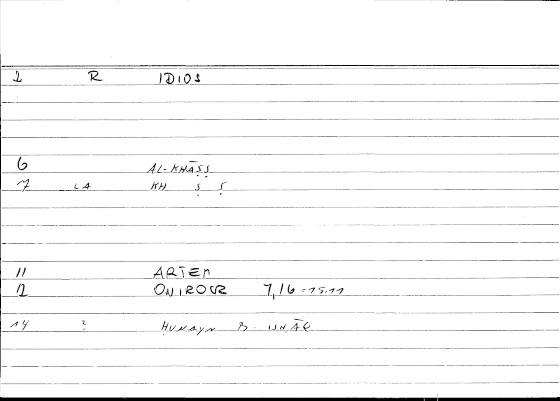 1 R IDIOS
6 AL-KHĀṢṢ
7 LA KH Ṣ Ṣ
11 ARTEM
12 ONIROCR 7,16 = 15.11
14 2 ḤUNAYN B. ISḤĀQ